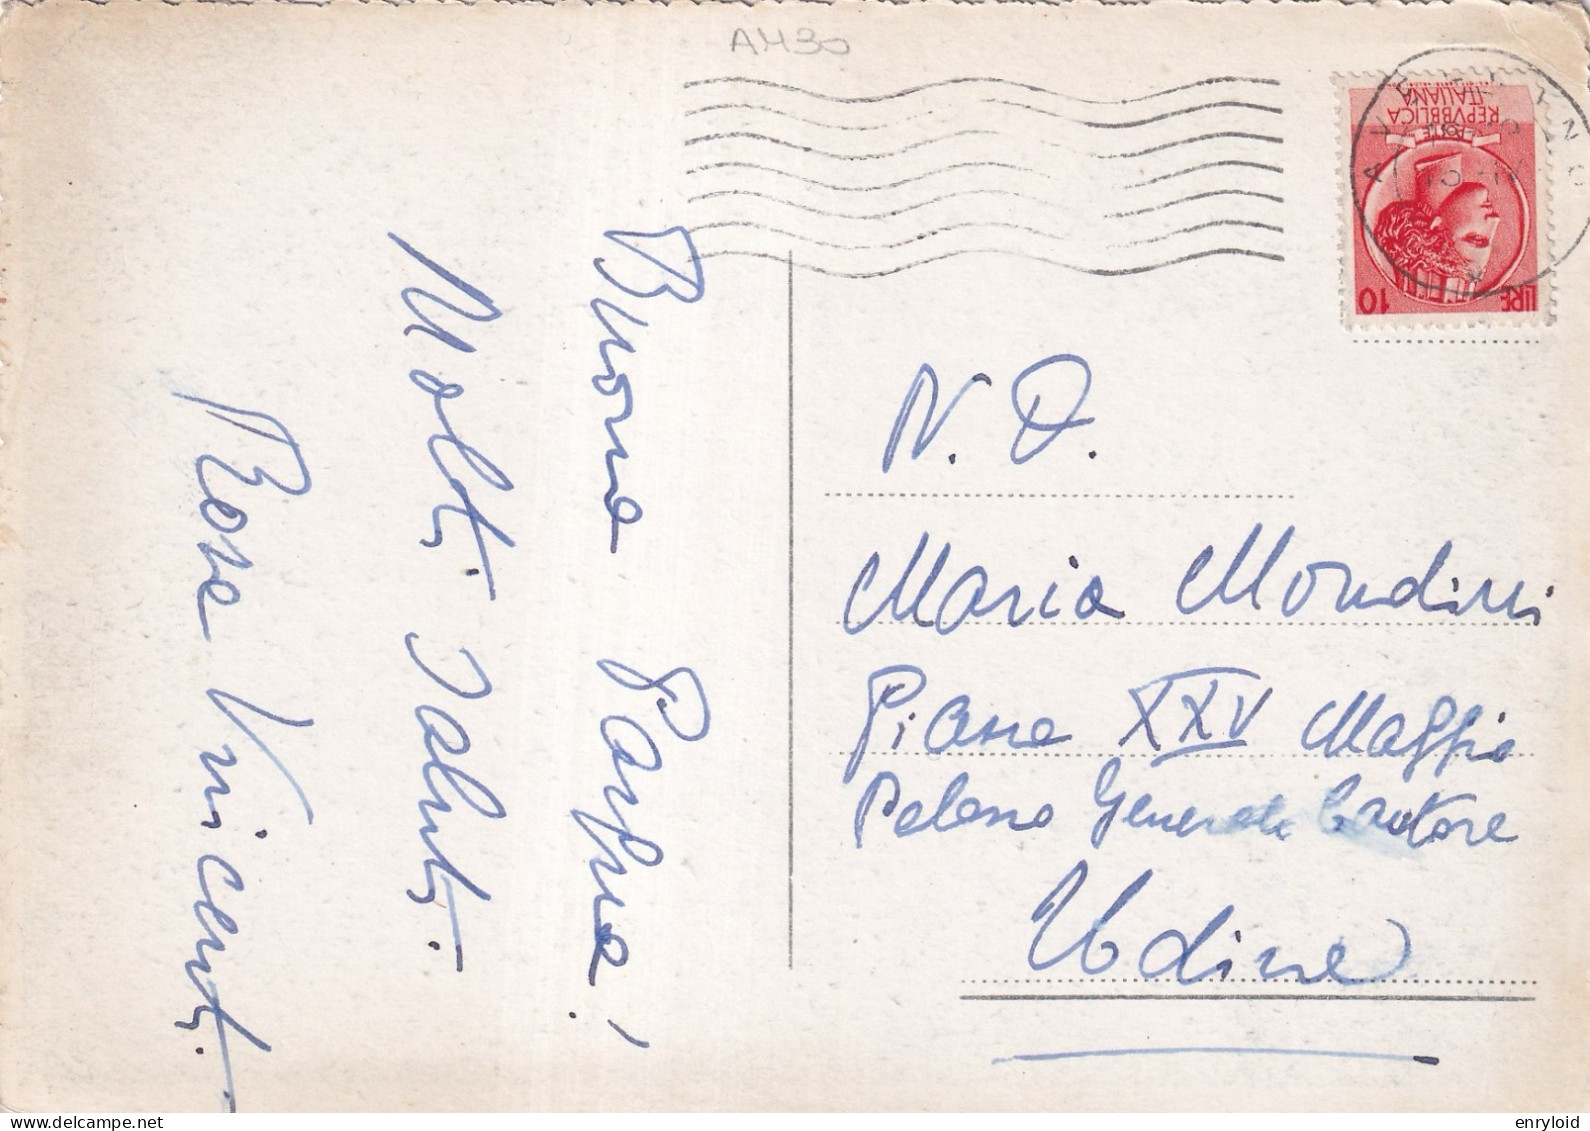 AM30
Buona Pasqua!
Molti saluti.
Rosa Vincenti.
REPVBBLICA
ITALIANA
LIRE 10
N. D.
Maria Mondini
Piazza XXV Maggio
Palazzo Generale Cantore
Udine
enryloid